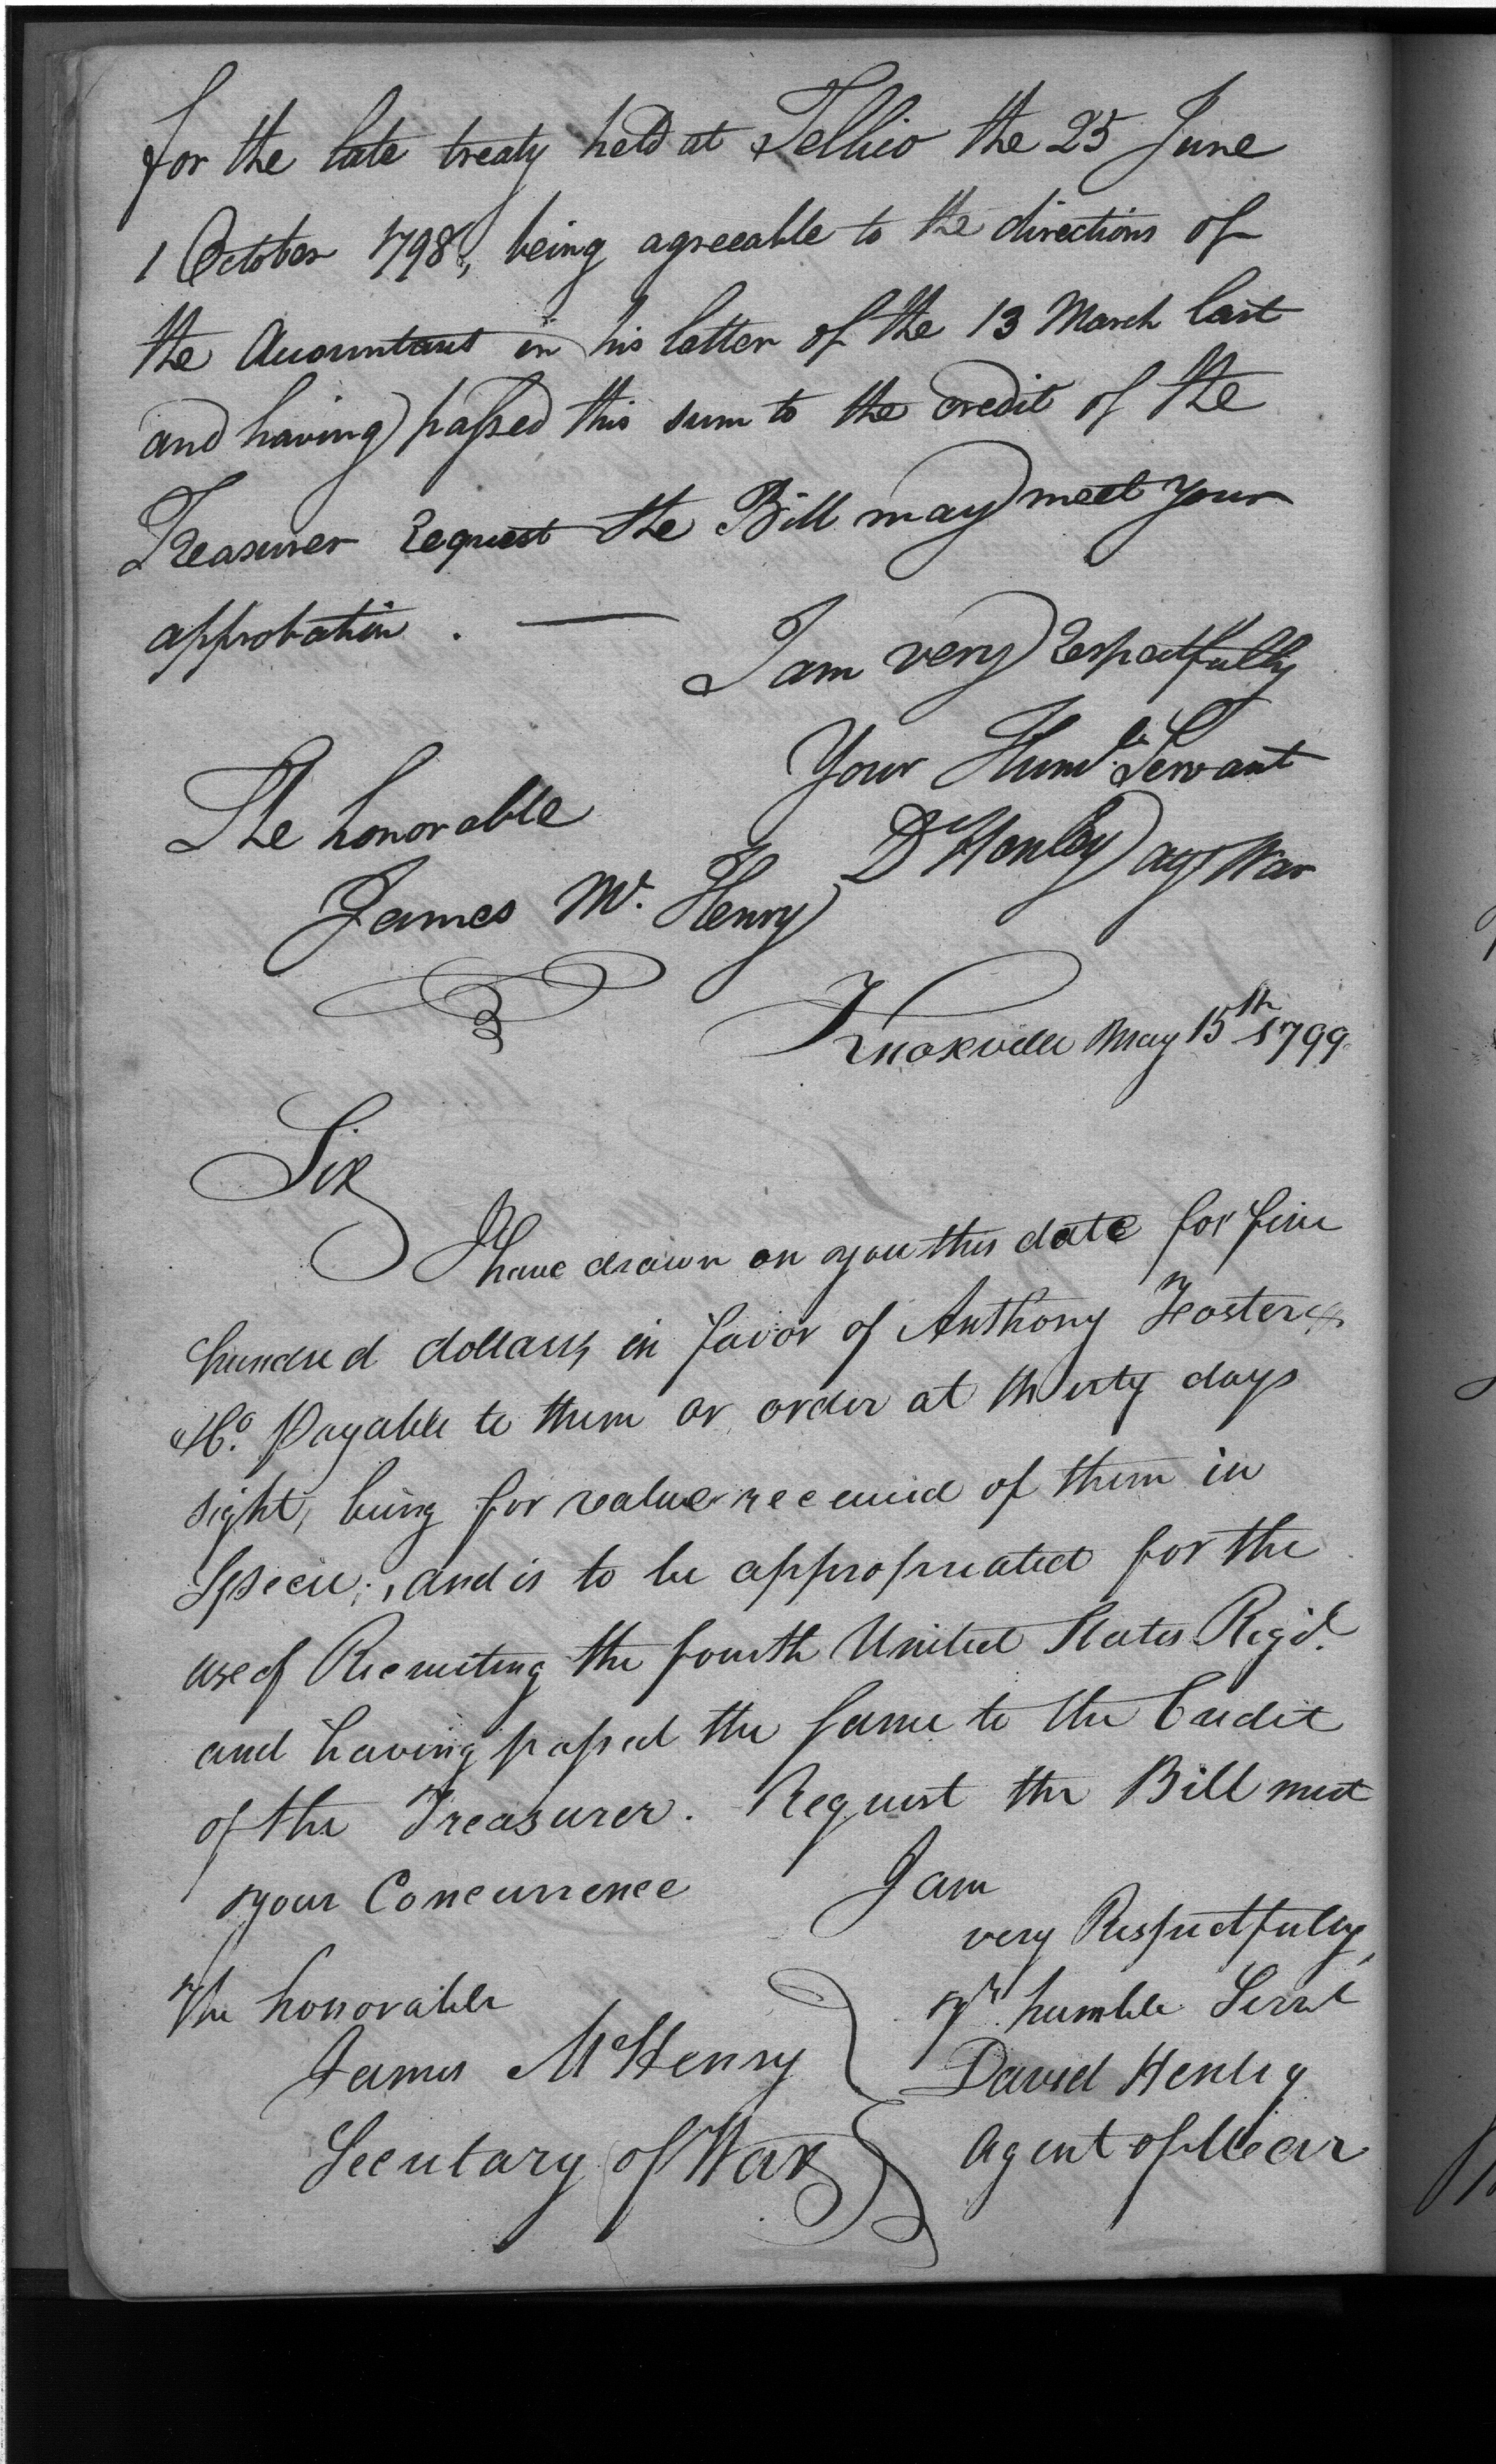 for the late treaty held at Tellico the 25 June
1 October 1798, being agreeable to the directions of
the Accountant in his letter of the 13 March last
and having passed this sum to the credit of the
Treasurer Request the Bill may meet your
approbation. —
I am very Respectfully
Your Hum.ble Servant
D Henley agt War
The honorable
James Mc. Henry
Knoxville May 15th 1799.
Sir
I have drawn on you this date for five
hundred dollars, in favor of Anthony Foster &
Co. Payable to them or order at thirty days
sight, being for value received of them in
Specie, and is to be appropriated for the
use of Recruiting the fourth United States Regt.
and having passed the same to the Credit
of the Treasurer. Request the Bill meet
your Concurrence
I am
very Respectfully,
yr. humble Servt
David Henley
Agent of War
The honorable
James McHenry
Secretary of War